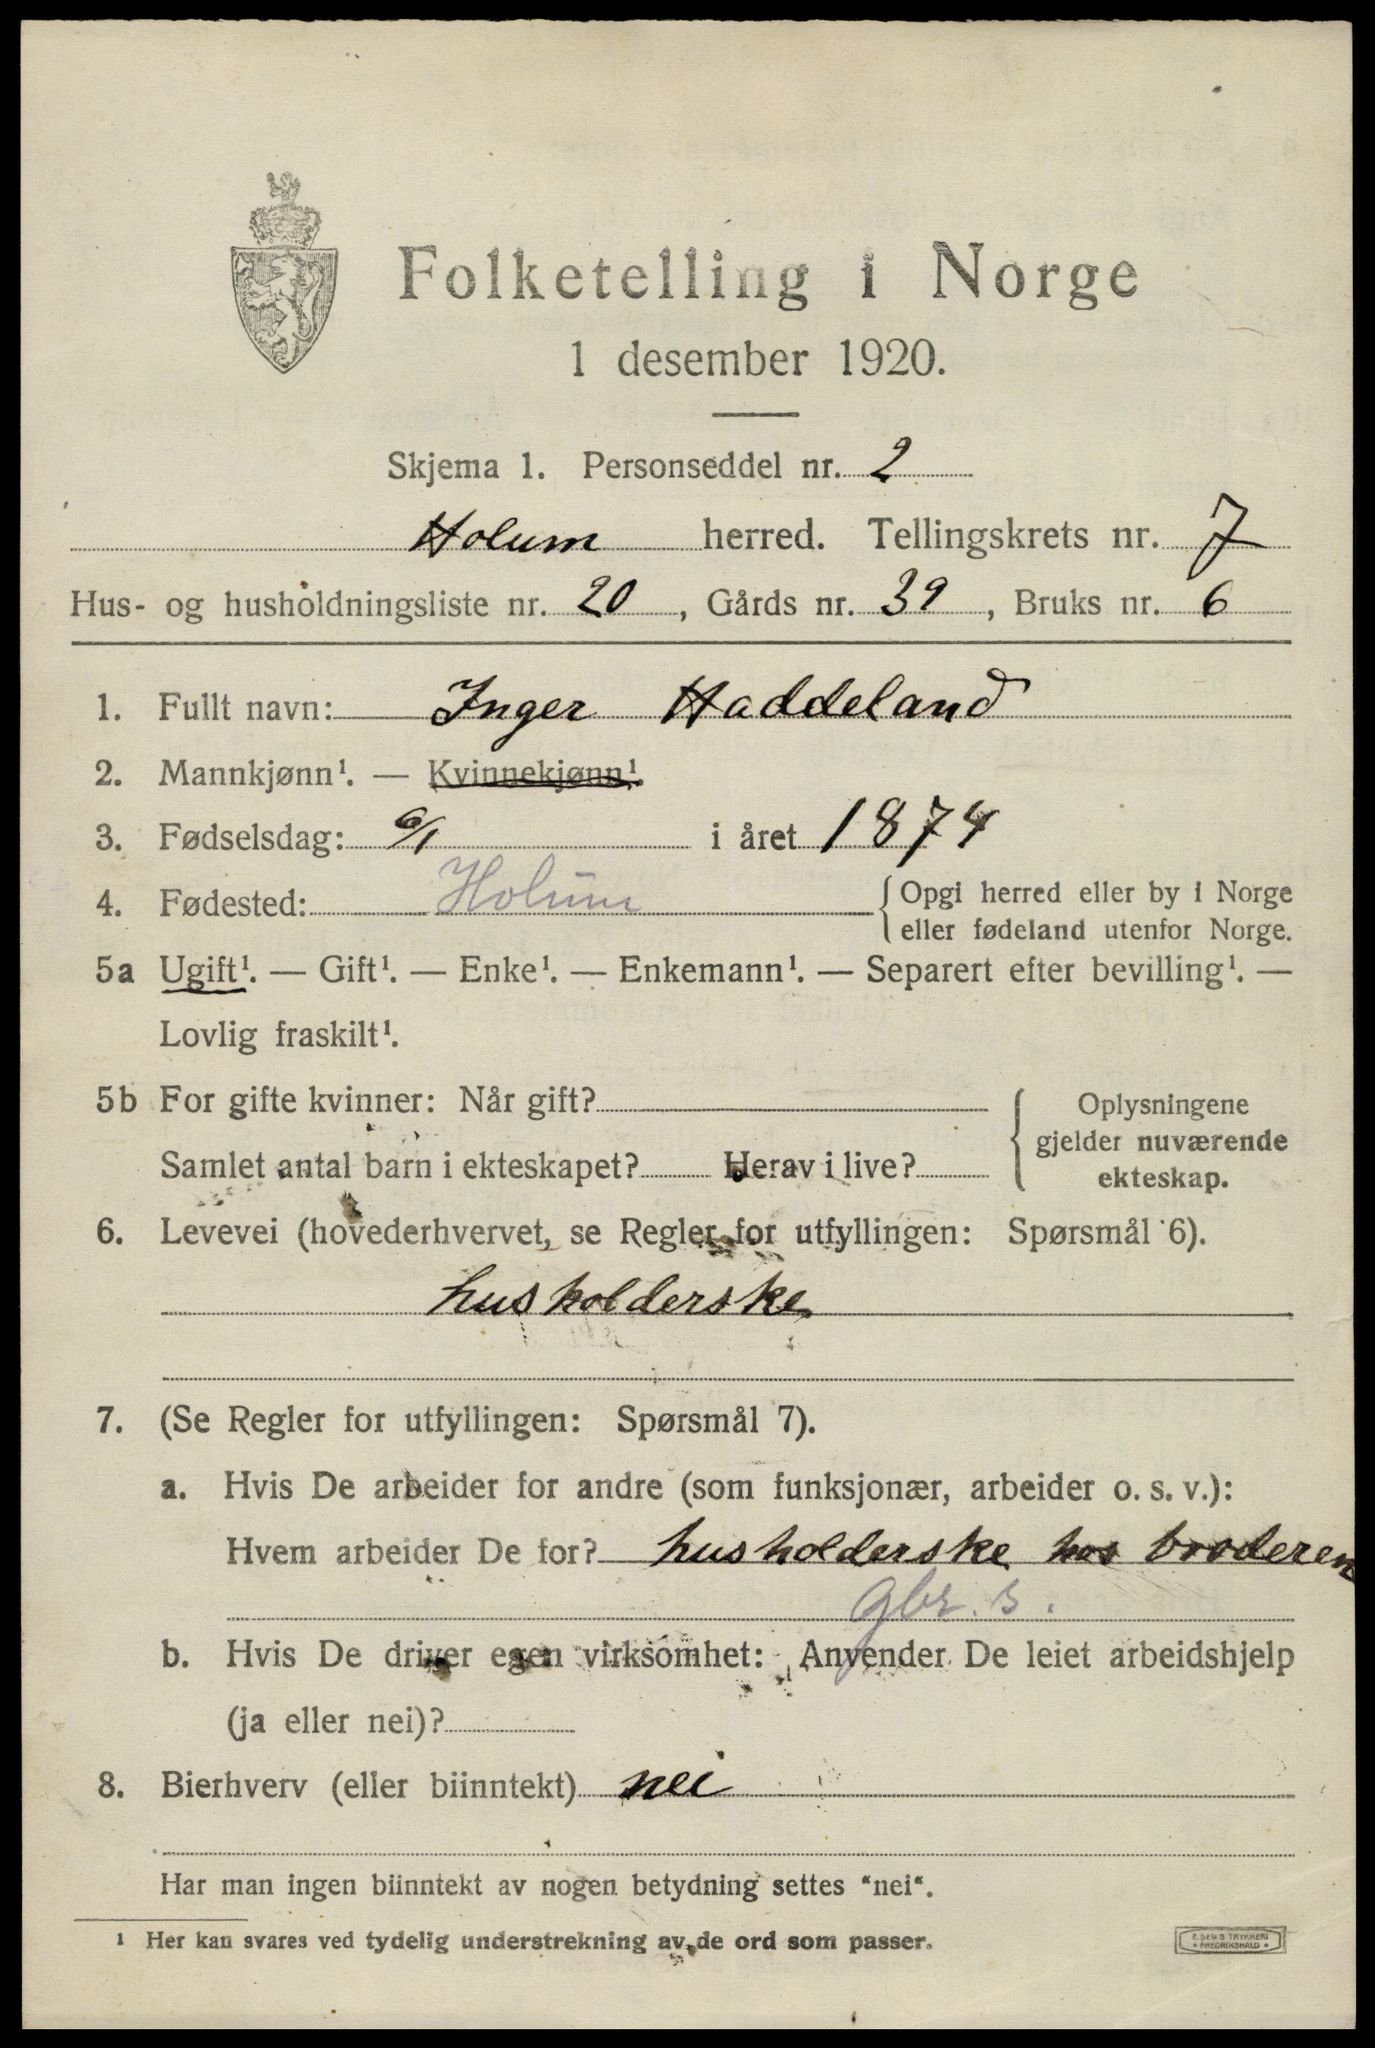 Folketelling i Norge
1 desember 1920.
Skjema 1. Personseddel nr. 2
Holum herred. Tellingskrets nr. 7
Hus- og husholdningsliste nr. 20, Gårds nr. 39, Bruks nr. 6
1. Fullt navn: Inger Haddeland
2. Mannkjønn¹. — Kvinnekjønn¹.
3. Fødselsdag: 6/1 i året 1874
4. Fødested: Holum {Opgi herred eller by i Norge
eller fødeland utenfor Norge.
5a Ugift¹. — Gift¹. — Enke¹. — Enkemann¹. — Separert efter bevilling¹. —
Lovlig fraskilt¹.
5b For gifte kvinner: Når gift?
Samlet antal barn i ekteskapet? Herav i live?
{Oplysningene
gjelder nuværende
ekteskap.
6. Levevei (hovederhvervet, se Regler for utfyllingen: Spørsmål 6).
husholderske
7. (Se Regler for utfyllingen: Spørsmål 7).
a. Hvis De arbeider for andre (som funksjonær, arbeider o. s. v.):
Hvem arbeider De for? husholderske hos broderen
gbr. s.
b. Hvis De driver egen virksomhet: Anvender De leiet arbeidshjelp
(ja eller nei)?
8. Bierhverv (eller biinntekt) nei
Har man ingen biinntekt av nogen betydning settes "nei".
¹ Her kan svares ved tydelig understrekning av de ord som passer.
E. SEMS TRYKKERI
• FREDRIKSHALD •